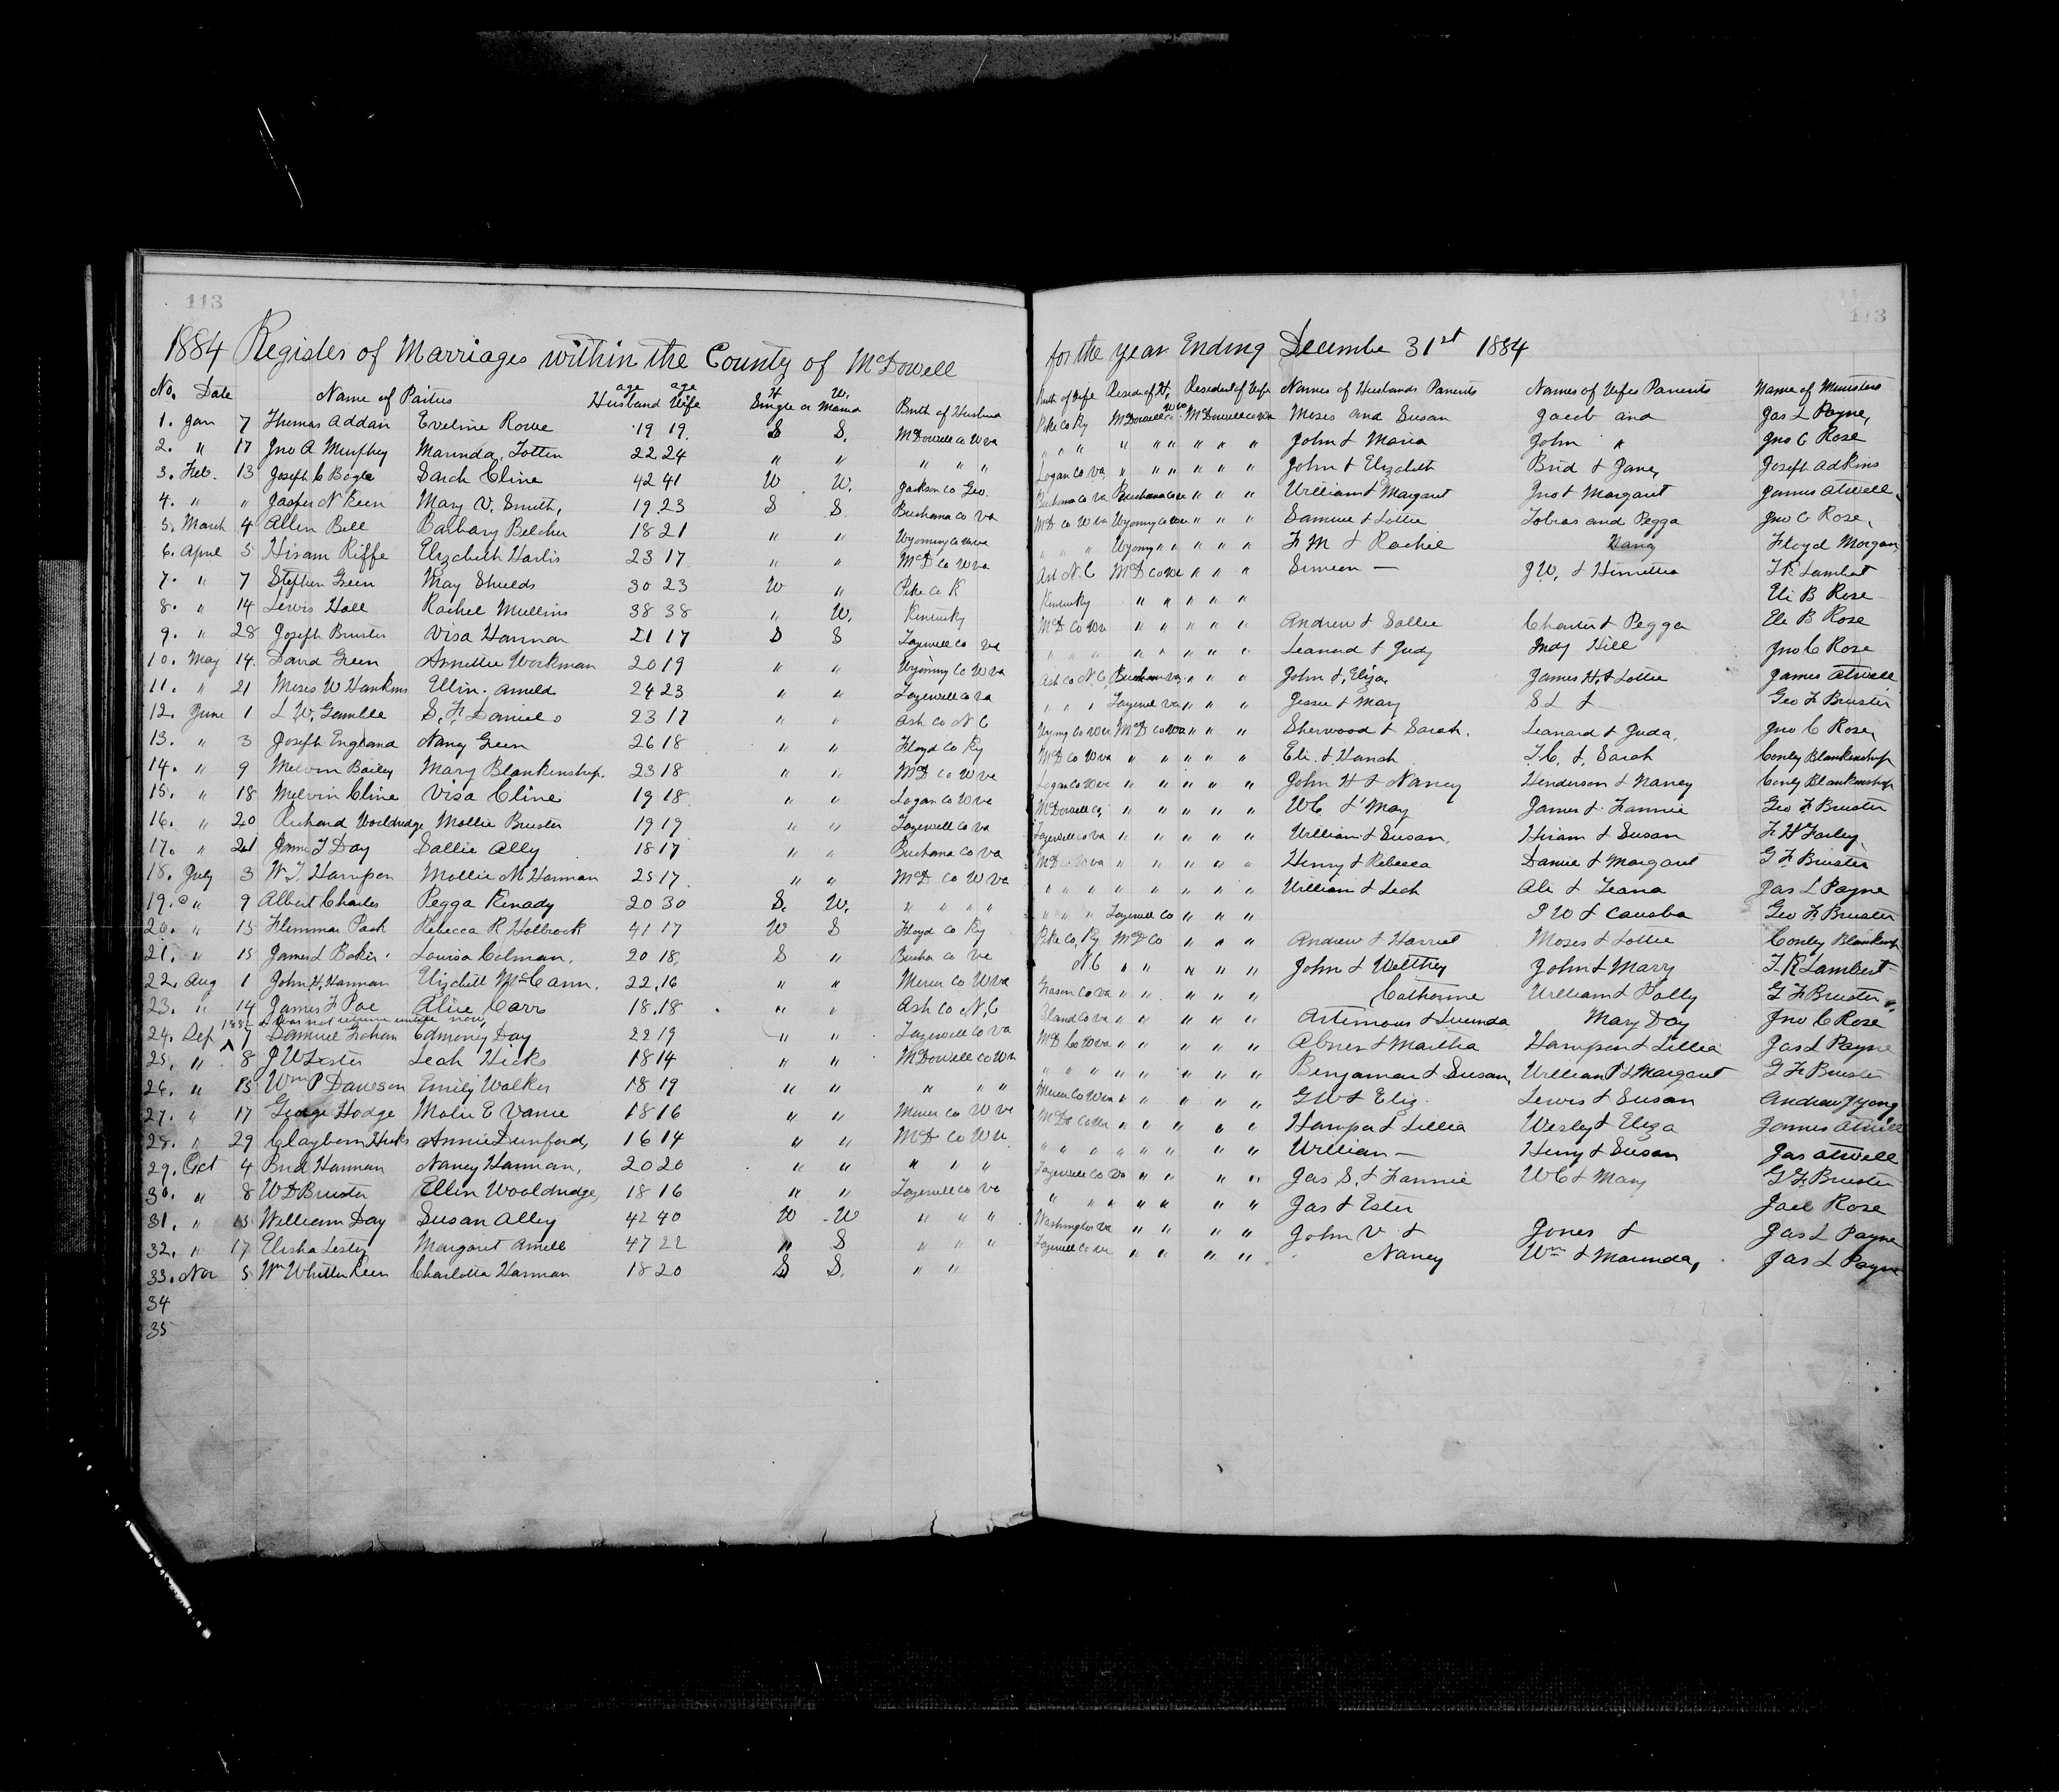 113
1884 Register of Marriages within the County of McDowell
No. Date Name of Parties age Husband age Wife H Single or W. Marrid Birth of Husband
1. Jan 7 Thomas Addair Eveline Rowe 19 19. S S. McDowell Co W va
2. " 17 Jno A Murphey Marinda, Totten 22 24 " " " " "
3. Feb. 13 Joseph C Bogle Sarah Cline 42 41 W W. Jackson Co Geo.
4. " " Jasper N Keen Mary V. Smith, 19 23 S S Buchana Co Va
5. March 4 Allen Bell Barbary Belcher 18 21 " " Wyoming Co W va
6. April 5 Hiram Riffe Elizabeth Harlis 23 17 " " McD Co W va
7. " 7 Stephen Green May Shields 30 23 W " Pike Co K
8. " 14 Lewis Hall Rachel Mullins 38 38 " W. Kentucky
9. " 28 Joseph Bruster Visa Harman 21 17 S S Tazewell Co va
10. May 14. David Green Annettie Workman 20 19 " " Wyoming Co W va
11. " 21 Moses W Hankins Ellin. Arnold 24 23 " " Tazewell Co va
12. June 1 L W. Gamble S. F. Daniels 23 17 " " Ash Co N C
13. " 3 Joseph England Nancy Green 26 18 " " Floyd Co Ky
14. " 9 Melvin Bailey Mary Blankinship. 23 18 " " McD Co W va
15. " 18 Melvin Cline Visa Cline 19 18 " " Logan Co W va
16. " 20 Richard Wooldridge Mollie Bruster 19 19 " " Tazewell Co va
17. " 21 James T Day Sallie Ally 18 17 " " Buchana Co va
18. July 3 W. T. Harmon Mollie M Harman 25 17 " " McD Co W va
19. " 9 Albert Charles Pegga Kenady 20 30 S. W. " " " "
20. " 13 Flemmon Pack Rebecca R Holbrook 41 17 W S Floyd Co Ky
21. " 15 James L Baker Louisa Colman. 20 18 S " Bucha Co va
22. Aug 1 John H, Harman Elizabeth McCann. 22.16 " " Mercer Co W va
23. " 14 James F Poe Alice Carr 18.18 " " Ash Co N. C
1882 & was not return untill now,
24. Sep 7 Samuel Graham Edmoney Day 22 19 " " Tazewell Co Va
25. " 8 J W Lester Leah Hicks 18 14 " " McDowell Co W va
26. " 13 Wm P Dawson Emily Walker 18 19 " " " " "
27. " 17 George Hodge Molie E Vance 18 16 " " Mercer Co W va
28. " 29 Clayborn Hicks Annie Dunford, 16 14 " " McD Co W v
29. Oct 4 Brid Harman Nancy Harman, 20 20 " " " " "
30. " 8 W D Bruster Ellen Wooldridge, 18 16 " " Tazewell Co va
31. " 15 William Day Susan Alley 42 40 W W " " "
32. " 17 Elisha Lester Margaret Arnell 47 22 " S " " "
33. Nov 5 Wm Whitten Keen Charlotta Harman 18 20 S S. " "
34
35
113
for the year Ending Decembe 31st 1884
Birth of Wife Reside of H. Resident of Wife Names of Husbands Parents Names of Wifes Parents Name of Ministers
Pike Co Ky McDowell Co W va McDowell Co W va Moses and Susan Jacob and Jas L Payne,
" " " " " " " " " John & Maria John " Jno C Rose
Logan Co va " " " " " " John & Elizabeth Brid & Jane, Joseph Adkins
Buchana Co va Buchana Co va " " " William & Margaret Jno & Margaret James Atwell
McD Co W va Wyoming Co W va " " " Samuel & Lottie Tobias and Pegga Jno C Rose,
" " " Wyoming " " " " " F M & Rachel Nancy Floyd Morgan
Ash N. C McD Co W va " " " Simeon — J W. & T R Lambert
Kentucky " " " " " Eli B Rose
McD Co W va " " " " " Andrew & Sallie Charles & Pegga Ele B Rose
" " " " " " " " Leanard & Judy Hill Jno C Rose
Ash Co N C, " " " John & Eliza James H. & Lottie James Atwell
" " " Tazewell va " " " Jessee & Mary S L & Geo F Bruster
Wyomg Co W va McD Co W va " " " Sherwood & Sarah. Leanard & Juda, Jno C Rose,
McD Co W va " " " " " Eli & Hanah T. C. & Sarah Conley Blankenship
Logan Co W va " " " " " John H & Nancy Henderson & Nancy Conly Blankenship
McDowell Co, " " " " " W C & May James & Fannie Geo F Bruster
Tazewell Co va " " " " " William & Susan, Hiram & Susan F. H Farley,
McD Co W va " " " " " Henry & Rebecca Daniel & Margaret G F Bruster
" " " " " " " " William & Leah Ali & Jas L Payne
" " " Tazewell Co " " " P W & Geo F Bruster
Pike Co, Ky McD Co " " " Andrew & Harriet Moses & Lottie Conley Blankenship
N C " " " " " John & Welthey John & Mary T. R Lambert
Grason Co va " " " " " Catherine William & Polly G F Bruster
Bland Co va " " " " " Artimous & Luemda Mary Day Jno C Rose
McD Co W va " " " " " Abner & Martha Harmon & Lillia Jas L Payne
" " " " " " " " Benjaman & Susan, William P & Margaret G F Bruster
Mercer Co W va " " " " " G W & Eliz. Lewis & Susan Andrew J Yong
McD Co W va " " " " " Harmon & Lillia Wesley & Eliza James Atwell
" " " " " " " " William — Henry & Susan Jas Atwell
Tazewell Co Va " " " " Jas S. & Fannie W C & Mary G F Bruster
" " " " " " " Jas & Ester Jael Rose
Washington va " " " " John V & Jones & Jas L Payne
Tazewell Co va " " " " Nancy Wm & Maunda, Jas L Payne